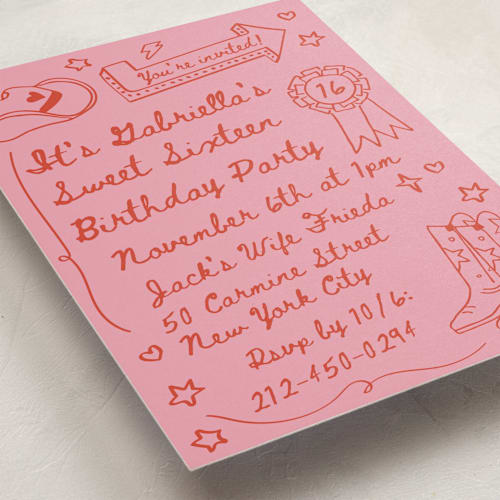 You're invited!
16
It's Gabriella's
Sweet Sixteen
Birthday Party
November 6th at 1pm
Jack's Wife Frieda
50 Carmine Street
New York City
Rsvp by 10/6:
212-450-0294